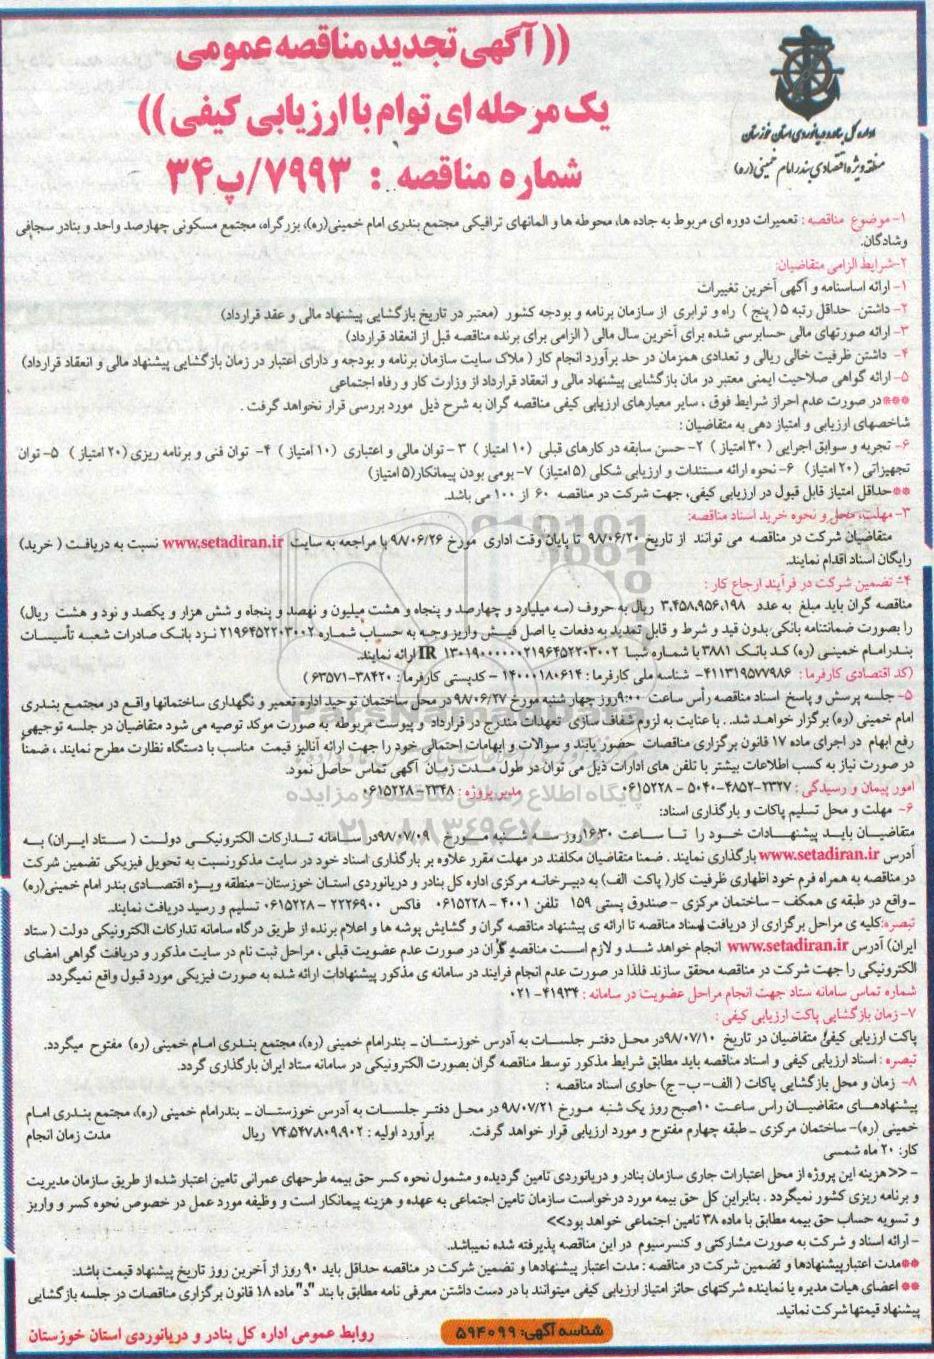 ((آگهی تجدید مناقصه عمومی
یک مرحله ای توام با ارزیابی کیفی))
شماره مناقصه : ۷۹۹۳/پ۳۴
اداره کل بنادر و دریانوردی استان خوزستان
منطقه ویژه اقتصادی بندر امام خمینی (ره)
۱- موضوع مناقصه : تعمیرات دوره ای مربوط به جاده ها، محوطه ها و المانهای ترافیکی مجتمع بندری امام خمینی(ره)، بزرگراه، مجتمع مسکونی چهارصد واحد و بنادر سجافی
وشادگان.
۲-شرایط الزامی متقاضیان:
۱- ارائه اساسنامه و آگهی آخرین تغییرات
۲- داشتن حداقل رتبه ۵ ( پنج ) راه و ترابری از سازمان برنامه و بودجه کشور (معتبر در تاریخ بازگشایی پیشنهاد مالی و عقد قرارداد)
۳- ارائه صورتهای مالی حسابرسی شده برای آخرین سال مالی ( الزامی برای برنده مناقصه قبل از انعقاد قرارداد)
۴- داشتن ظرفیت خالی ریالی و تعدادی همزمان در حد برآورد انجام کار ( ملاک سایت سازمان برنامه و بودجه و دارای اعتبار در زمان بازگشایی پیشنهاد مالی و انعقاد قرارداد)
۵- ارائه گواهی صلاحیت ایمنی معتبر در مان بازگشایی پیشنهاد مالی و انعقاد قرارداد از وزارت کار و رفاه اجتماعی
***در صورت عدم احراز شرایط فوق ، سایر معیارهای ارزیابی کیفی مناقصه گران به شرح ذیل مورد بررسی قرار نخواهد گرفت .
شاخصهای ارزیابی و امتیاز دهی به متقاضیان :
۶- تجربه و سوابق اجرایی ( ۳۰ امتیاز ) ۲- حسن سابقه در کارهای قبلی (۱۰ امتیاز ) ۳ - توان مالی و اعتباری (۱۰ امتیاز ) ۴- توان فنی و برنامه ریزی (۲۰ امتیاز ) ۵- توان
تجهیزاتی (۲۰ امتیاز) ۶- نحوه ارائه مستندات و ارزیابی شکلی (۵ امتیاز) ۷- بومی بودن پیمانکار(۵ امتیاز)
**حداقل امتیاز قابل قبول در ارزیابی کیفی، جهت شرکت در مناقصه ۶۰ از ۱۰۰ می باشد.
۳- مهلت، محل و نحوه خرید اسناد مناقصه:
متقاضیان شرکت در مناقصه می توانند از تاریخ ۹۸/۰۶/۲۰ تا پایان وقت اداری مورخ ۹۸/۰۶/۲۶ با مراجعه به سایت www.setadiran.ir نسبت به دریافت ( خرید)
رایگان اسناد اقدام نمایند.
۴- تضمین شرکت در فرآیند ارجاع کار :
مناقصه گران باید مبلغ به عدد ۳.۴۵۸.۹۵۶.۱۹۸ ریال به حروف (سه میلیارد و چهارصد و پنجاه و هشت میلیون و نهصد و پنجاه و شش هزار و یکصد و نود و هشت ریال)
را بصورت ضمانتنامه بانکی بدون قید و شرط و قابل تمدید به دفعات یا اصل فیش واریز وجه به حساب شماره ۲۱۹۶۴۵۲۲۰۳۰۰۲ نزد بانک صادرات شعبه تأسیسات
بندرامام خمینی (ره) کد بانک ۳۸۸۱ با شماره شبا IR ۱۳۰۱۹۰۰۰۰۰۰۲۱۹۶۴۵۲۲۰۳۰۰۲ ارائه نمایند.
(کد اقتصادی کارفرما : ۴۱۱۳۱۹۵۷۷۹۸۶- شناسه ملی کارفرما : ۱۴۰۰۰۱۸۰۶۱۴ - کدپستی کارفرما : ۳۸۴۲۰-۶۳۵۷۱ )
۵- جلسه پرسش و پاسخ اسناد مناقصه رأس ساعت ۹:۰۰ روز چهار شنبه مورخ ۹۸/۰۶/۲۷ در محل ساختمان توحید اداره تعمیر و نگهداری ساختمانها واقع در مجتمع بندری
امام خمینی (ره) برگزار خواهد شد. . با عنایت به لزوم شفاف سازی تعهدات مندرج در قرارداد و پیوست مربوطه به صورت موکد توصیه می شود متقاضیان در جلسه توجیهی
رفع ابهام در اجرای ماده ۱۷ قانون برگزاری مناقصات حضور یابند و سوالات و ابهامات احتمالی خود را جهت ارائه آنالیز قیمت مناسب با دستگاه نظارت مطرح نمایند ، ضمناً
در صورت نیاز به کسب اطلاعات بیشتر با تلفن های ادارات ذیل می توان در طول مدت زمان آگهی تماس حاصل نمود.
امور پیمان و رسیدگی : ۲۳۲۷-۴۸۵۲-۵۰۴۰ - ۰۶۱۵۲۲۸ مدیر پروژه : ۲۳۴۸- ۰۶۱۵۲۲۸
۶- مهلت و محل تسلیم پاکات و بارگذاری اسناد:
متقاضیان باید پیشنهادات خود را تا ساعت ۱۶:۳۰ روز سه شنبه مورخ ۹۸/۰۷/۰۹ در سامانه تدارکات الکترونیکی دولت ( ستاد ایران) به
آدرس www.setadiran.ir بارگذاری نمایند . ضمنا متقاضیان مکلفند در مهلت مقرر علاوه بر بارگذاری اسناد خود در سایت مذکورنسبت به تحویل فیزیکی تضمین شرکت
در مناقصه به همراه فرم خود اظهاری ظرفیت کار( پاکت الف) به دبیرخانه مرکزی اداره کل بنادر و دریانوردی استان خوزستان-منطقه ویژه اقتصادی بندر امام خمینی(ره)
ـ واقع در طبقه ی همکف - ساختمان مرکزی - صندوق پستی ۱۵۹ تلفن ۴۰۰۱ - ۰۶۱۵۲۲۸ فاکس ۲۲۲۶۹۰۰ - ۰۶۱۵۲۲۸ تسلیم و رسید دریافت نمایند.
تبصره:کلیه ی مراحل برگزاری از دریافت اسناد مناقصه تا ارائه ی پیشنهاد مناقصه گران و گشایش پوشه ها و اعلام برنده از طریق درگاه سامانه تدارکات الکترونیکی دولت ( ستاد
ایران) آدرس www.setadiran.ir انجام خواهد شد و لازم است مناقصه گران در صورت عدم عضویت قبلی ، مراحل ثبت نام در سایت مذکور و دریافت گواهی امضای
الکترونیکی را جهت شرکت در مناقصه محقق سازند فلذا در صورت عدم انجام فرایند در سامانه ی مذکور پیشنهادات ارائه شده به صورت فیزیکی مورد قبول واقع نمیگردد.
شماره تماس سامانه ستاد جهت انجام مراحل عضویت در سامانه : ۴۱۹۳۴- ۰۲۱
۷- زمان بازگشایی پاکت ارزیابی کیفی :
پاکت ارزیابی کیفی متقاضیان در تاریخ ۹۸/۰۷/۱۰ در محل دفتر جلسات به آدرس خوزستان ـ بندرامام خمینی (ره)، مجتمع بندری امام خمینی (ره) مفتوح میگردد.
تبصره : اسناد ارزیابی کیفی و اسناد مناقصه باید مطابق شرایط مذکور توسط مناقصه گران بصورت الکترونیکی در سامانه ستاد ایران بارگذاری گردد.
۸- زمان و محل بازگشایی پاکات ( الف- ب- ج) حاوی اسناد مناقصه :
پیشنهادهای متقاضیان راس ساعت ۱۰صبح روز یک شنبه مورخ ۹۸/۰۷/۲۱ در محل دفتر جلسات به آدرس خوزستان ـ بندرامام خمینی (ره)، مجتمع بندری امام
خمینی (ره)- ساختمان مرکزی ـ طبقه چهارم مفتوح و مورد ارزیابی قرار خواهد گرفت. برآورد اولیه : ۷۴.۵۴۷.۸۰۹.۹۰۲ ریال مدت زمان انجام
کار: ۲۰ ماه شمسی
- <<هزینه این پروژه از محل اعتبارات جاری سازمان بنادر و دریانوردی تامین گردیده و مشمول نحوه کسر حق بیمه طرحهای عمرانی تامین اعتبار شده از طریق سازمان مدیریت
و برنامه ریزی کشور نمیگردد . بنابراین کل حق بیمه مورد درخواست سازمان تامین اجتماعی به عهده و هزینه پیمانکار است و وظیفه مورد عمل در خصوص نحوه کسر و واریز
و تسویه حساب حق بیمه مطابق با ماده ۳۸ تامین اجتماعی خواهد بود>>
- ارائه اسناد و شرکت به صورت مشارکتی و کنسرسیوم در این مناقصه پذیرفته شده نمیباشد.
**مدت اعتبار پیشنهادها و تضمین شرکت در مناقصه : مدت اعتبار پیشنهادها و تضمین شرکت در مناقصه حداقل باید ۹۰ روز از آخرین روز تاریخ پیشنهاد قیمت باشد.
** اعضای هیات مدیره یا نماینده شرکتهای حائز امتیاز ارزیابی کیفی میتوانند با در دست داشتن معرفی نامه مطابق با بند "د" ماده ۱۸ قانون برگزاری مناقصات در جلسه بازگشایی
پیشنهاد قیمتها شرکت نمایند.
شناسه آگهی: ۵۹۴۰۹۹
روابط عمومی اداره کل بنادر و دریانوردی استان خوزستان
پایگاه اطلاع رسانی مناقصه و مزایده